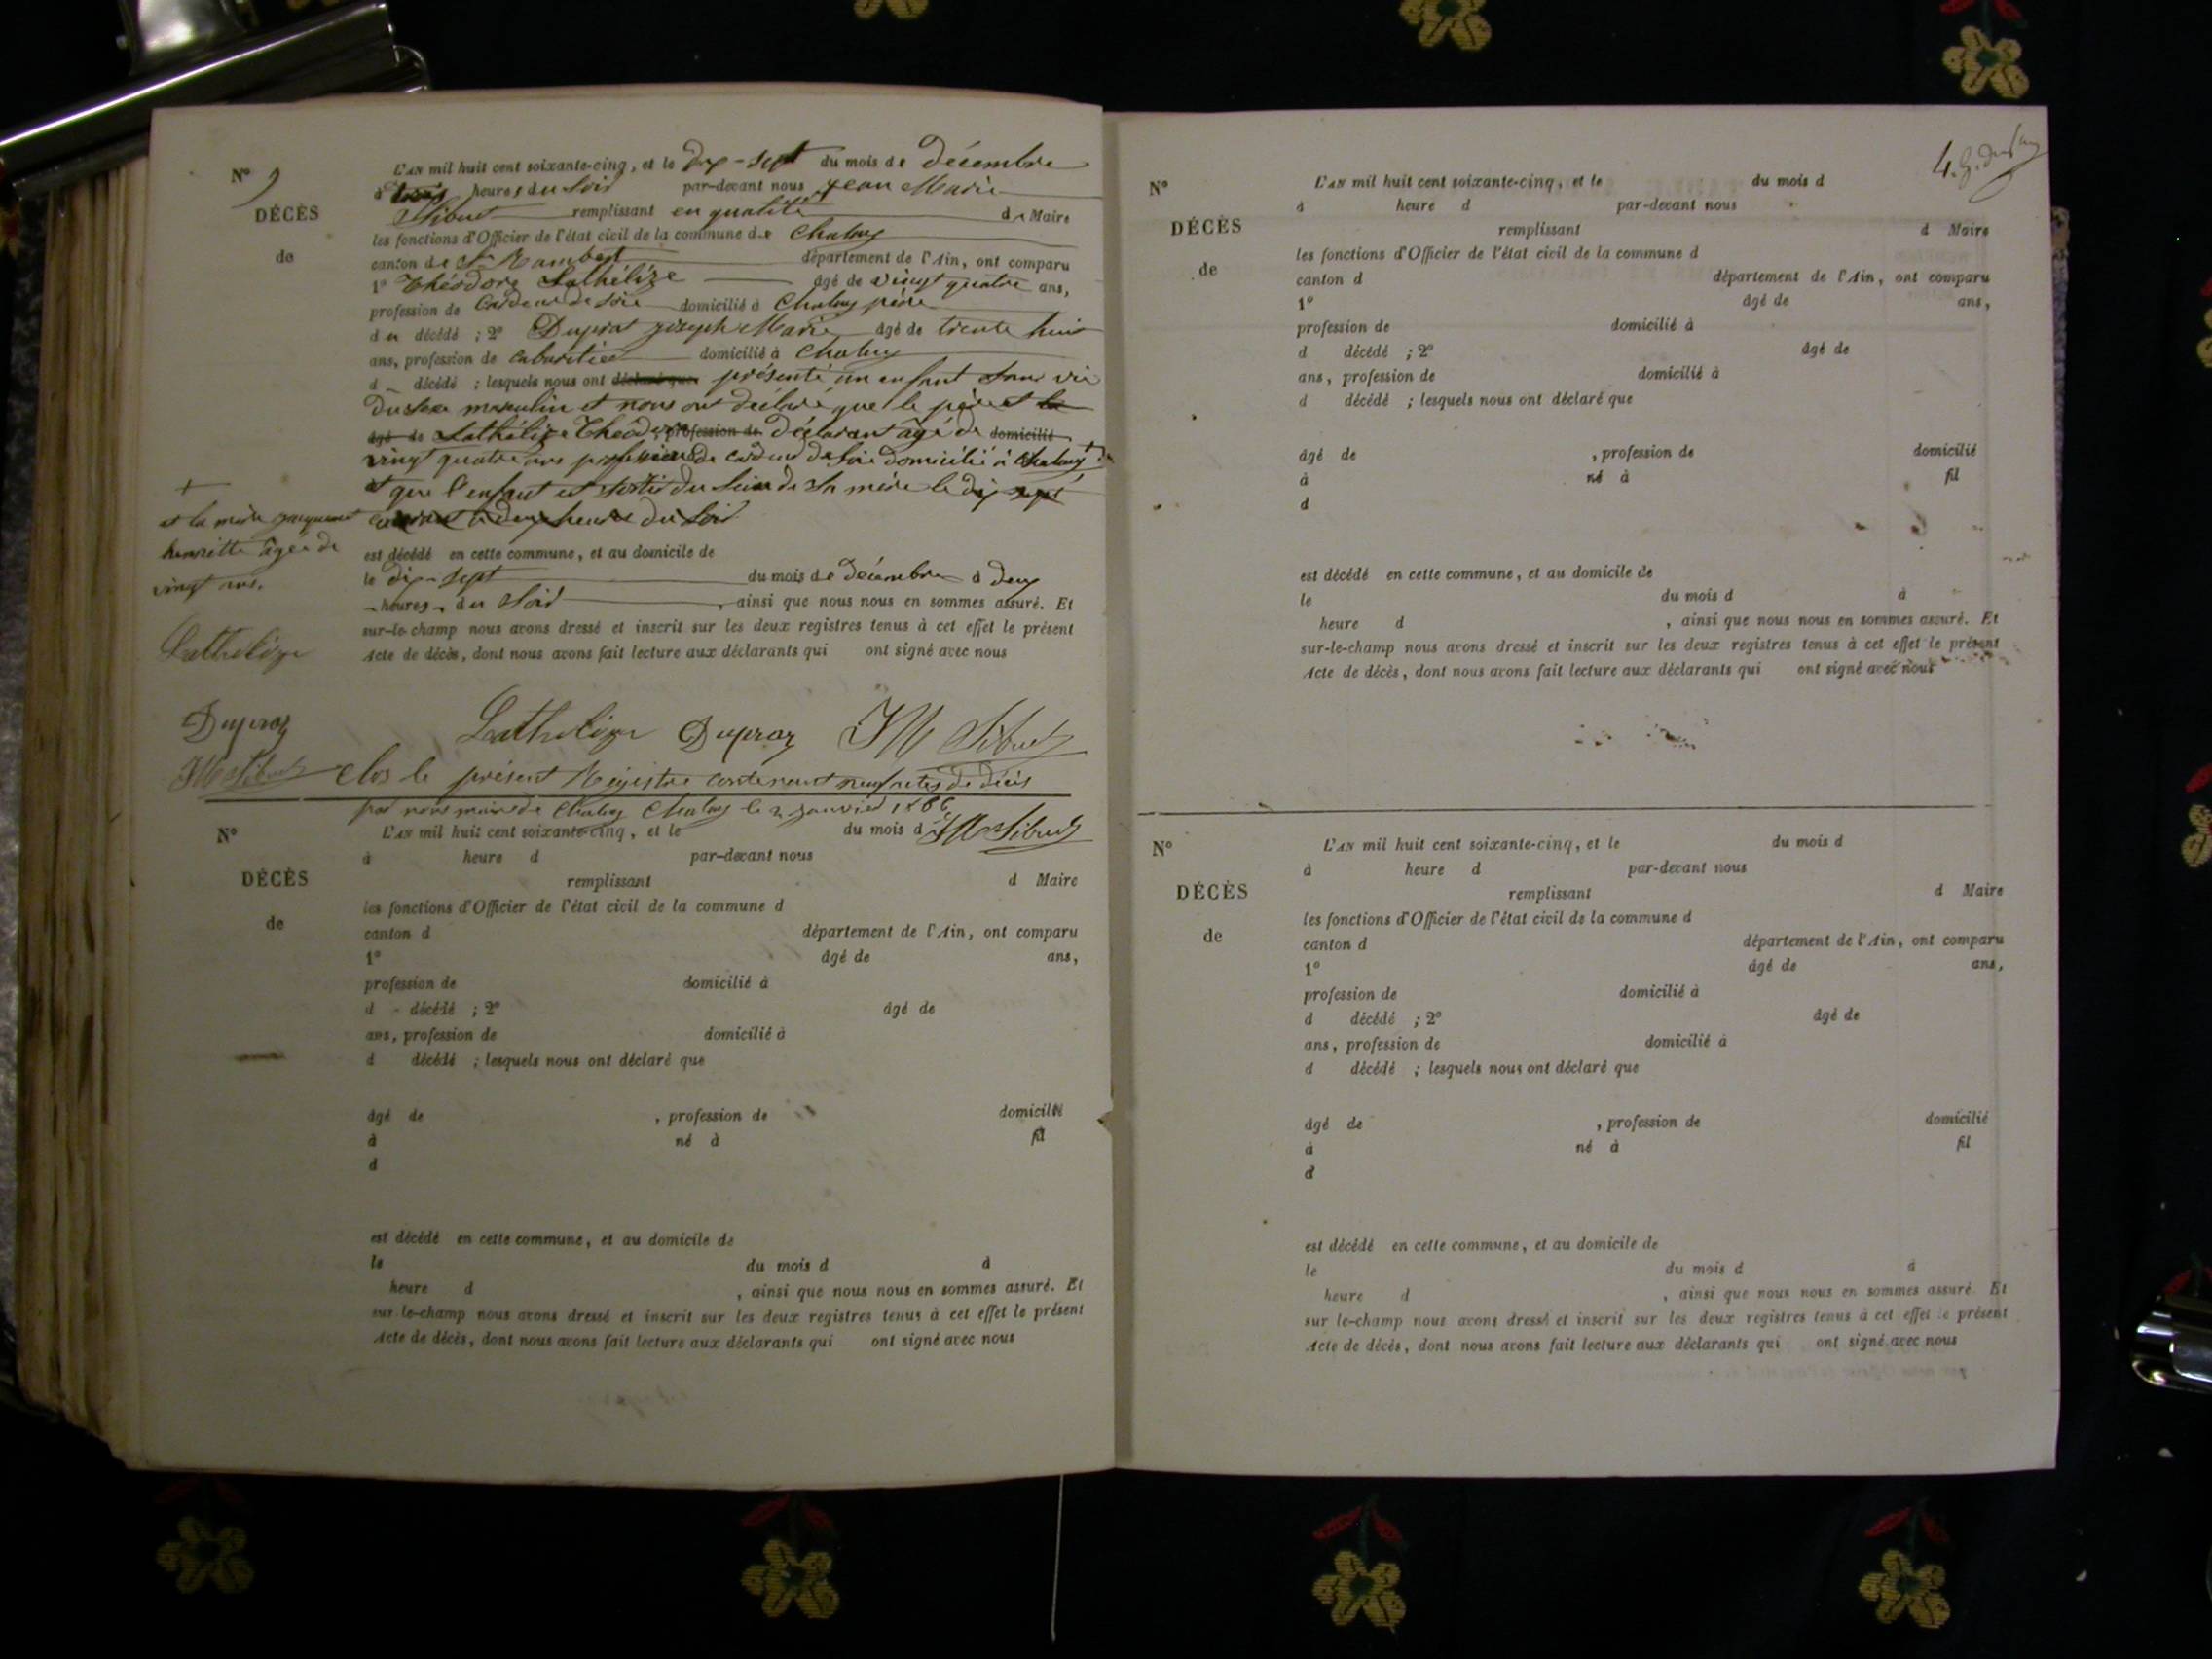 N° 9
DÉCÈS
de
L'AN mil huit cent soixante-cinq, et le dix-sept du mois de décembre
à trois heures du soir par-devant nous Jean Marie
Sibuet remplissant en qualité de Maire
les fonctions d'Officier de l'état civil de la commune de Chaley
canton de St Rambert département de l'Ain, ont comparu
1° Théodore Lathélize âgé de vingt quatre ans,
profession de Cardeur de Soie domicilié à Chaley père
du décédé ; 2° Dupraz joseph Marie âgé de trente huit
ans, profession de cabaretier domicilié à Chaley
d décédé ; lesquels nous ont déclaré que présenté un enfant sans vie
du sexe masculin et nous ont déclaré que le père et la
âgé de Lathélize Théodore, profession de déclarant agé de domicilié
vingt quatre ans profession de cardeur de soie domicilié à Chaley +
et que l'enfant est sorti du sein de sa mère le dix sept
courant à deux heures du soir
+
et la mère
henriette âgée de
vingt ans.
Lathelize
Dupraz
JM Sibuet
est décédé en cette commune, et au domicile de
le dix-sept du mois de décembre à deux
heures du soir , ainsi que nous nous en sommes assuré. Et
sur-le-champ nous avons dressé et inscrit sur les deux registres tenus à cet effet le présent
Acte de décès, dont nous avons fait lecture aux déclarants qui ont signé avec nous
Lathelize Dupraz JM Sibuet
Clos le présent Régistre contenant neuf actes de décès
par nous maire de Chaley Chaley le 2 janvier 1866
JM Sibuet
N°
DÉCÈS
de
L'AN mil huit cent soixante-cinq, et le du mois d
à heure d par-devant nous
remplissant d Maire
les fonctions d'Officier de l'état civil de la commune d
canton d département de l'Ain, ont comparu
1° âgé de ans,
profession de domicilié à
d décédé ; 2° âgé de
ans, profession de domicilié à
d décédé ; lesquels nous ont déclaré que
âgé de , profession de domicilié
à né à fil
d
est décédé en cette commune, et au domicile de
le du mois d à
heure d , ainsi que nous nous en sommes assuré. Et
sur-le-champ nous avons dressé et inscrit sur les deux registres tenus à cet effet le présent
Acte de décès, dont nous avons fait lecture aux déclarants qui ont signé avec nous
N°
DÉCÈS
de
L'AN mil huit cent soixante-cinq, et le du mois d
à heure d par-devant nous
remplissant d Maire
les fonctions d'Officier de l'état civil de la commune d
canton d département de l'Ain, ont comparu
1° âgé de ans,
profession de domicilié à
d décédé ; 2° âgé de
ans, profession de domicilié à
d décédé ; lesquels nous ont déclaré que
âgé de , profession de domicilié
à né à fil
d
est décédé en cette commune, et au domicile de
le du mois d à
heure d , ainsi que nous nous en sommes assuré. Et
sur-le-champ nous avons dressé et inscrit sur les deux registres tenus à cet effet le présent
Acte de décès, dont nous avons fait lecture aux déclarants qui ont signé avec nous
N°
DÉCÈS
de
L'AN mil huit cent soixante-cinq, et le du mois d
à heure d par-devant nous
remplissant d Maire
les fonctions d'Officier de l'état civil de la commune d
canton d département de l'Ain, ont comparu
1° âgé de ans,
profession de domicilié à
d décédé ; 2° âgé de
ans, profession de domicilié à
d décédé ; lesquels nous ont déclaré que
âgé de , profession de domicilié
à né à fil
d
est décédé en cette commune, et au domicile de
le du mois d à
heure d , ainsi que nous nous en sommes assuré. Et
sur le-champ nous avons dressé et inscrit sur les deux registres tenus à cet effet le présent
Acte de décès, dont nous avons fait lecture aux déclarants qui ont signé avec nous